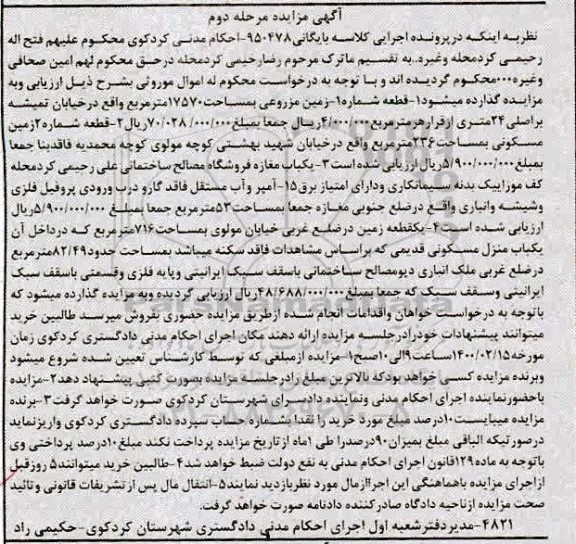 آگهی مزایده مرحله دوم
نظر به اینکه در پرونده اجرایی کلاسه بایگانی ۹۵۰۴۷۸-احکام مدنی کردکوی محکوم علیهم فتح اله
رحیمی کردمحله وغیره..به تقسیم ماترک مرحوم رضارحیمی کردمحله درحق محکوم لهم امین صحافی
وغیره۰۰۰محکوم گردیده اند و با توجه به درخواست محکوم له اموال موروثی بشرح ذیل ارزیابی وبه
مزایده گذارده میشود۱-قطعه شماره۱-زمین مزروعی بمساحت۱۷۵۷۰مترمربع واقع درخیابان تمیشه
براصلی۲۴متری ازقرارهرمترمربع۴/۰۰۰/۰۰۰ریال جمعا بمبلغ۷۰/۰۲۸/۰۰۰/۰۰۰ریال۲-قطعه شماره۲زمین
مسکونی بمساحت۲۳۶مترمربع واقع درخیابان شهید بهشتی کوچه مولوی کوچه محمدیه فاقدبنا جمعا
بمبلغ۵/۹۰۰/۰۰۰/۰۰۰ریال ارزیابی شده است۳-یکباب مغازه فروشگاه مصالح ساختمانی علی رحیمی کردمحله
کف موزاییک بدنه سیمانکاری ودارای امتیاز برق۱۵-آمپر وآب مستقل فاقد گازو درب ورودی پروفیل فلزی
وشیشه وانباری واقع درضلع جنوبی مغازه جمعا بمساحت۵۳مترمربع جمعا بمبلغ ۵/۹۰۰/۰۰۰/۰۰۰ریال
ارزیابی شده است۴-یکقطعه زمین درضلع غربی خیابان مولوی بمساحت۷۱۶مترمربع که درداخل آن
یکباب منزل مسکونی قدیمی که براساس مشاهدات فاقد سکنه میباشد بمساحت حدود۸۲/۴۹مترمربع
درضلع غربی ملک انباری دیومصالح ساختمانی باسقف سبک ایرانیتی وپایه فلزی وقسمتی باسقف سبک
ایرانیتی وسقف سبک که جمعا بمبلغ۴۸/۶۸۸/۰۰۰/۰۰۰ریال ارزیابی گردیده وبه مزایده گذارده میشود که
باتوجه به درخواست خواهان واقدامات انجام شده ازطریق مزایده حضوری بفروش میرسد طالبین خرید
میتوانند پیشنهادات خودرادرجلسه مزایده ارائه دهند مکان اجرای احکام مدنی دادگستری کردکوی زمان
مورخه۱۴۰۰/۰۲/۱۵ساعت۹الی۱۰صبح۱-مزایده ازمبلغی که توسط کارشناس تعیین شده شروع میشود
وبرنده مزایده کسی خواهدبودکه بالاترین مبلغ رادرجلسه مزایده بصورت کتبی پیشنهاد دهد۲-مزایده
باحضورنماینده اجرای احکام مدنی ونماینده دادسرای شهرستان کردکوی صورت خواهد گرفت۳-برنده
مزایده میبایست۱۰درصد مبلغ مورد خرید را نقدابشماره حساب سپرده دادگستری کردکوی واریزنماید
درصورتیکه الباقی مبلغ بمیزان۹۰درصدرا طی ۱ماه ازتاریخ مزایده پرداخت نکند مبلغ۱۰درصد پرداختی وی
باتوجه به ماده۱۲۹قانون اجرای احکام مدنی به نفع دولت ضبط خواهد شد۴-طالبین خرید میتوانند۵ روزقبل
ازاجرای مزایده باهماهنگی این اجراازمال مورد نظربازدید نمایند۵-انتقال مال پس ازتشریفات قانونی وتائید
صحت مزایده ازناحیه دادگاه صادرکننده دادنامه صورت خواهد گرفت.
۴۸۲۱-مدیردفترشعبه اول اجرای احکام مدنی دادگستری شهرستان کردکوی-حکیمی راد